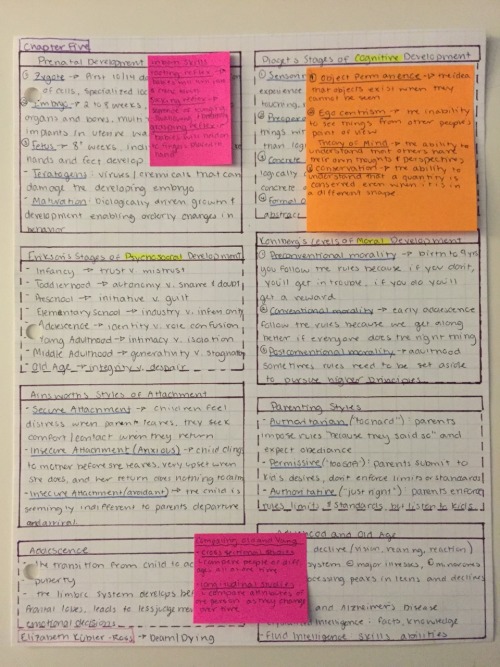 Chapter Five
Prenatal Development
① Zygote → first 10/14 da
of cells, specialized
② Embryo → 2 to 8 weeks,
organs and bones,
implants in uterine
③ Fetus → 8+ weeks,
hands and feet develop
- Teratogens: viruses/chemicals that can
damage the developing embryo
- Maturation: biologically driven growth &
development enabling orderly changes in
behavior
Infant Skills
rooting reflex →
Erikson's Stages of Psychosocial Development
- Infancy → trust v. mistrust
- Toddlerhood → autonomy v. shame & doubt
- Preschool → initiative v. guilt
- Elementary School → industry v. inferiority
- Adolescence → identity v. role confusion
- Young Adulthood → intimacy v. isolation
- Middle Adulthood → generativity v. stagnation
- Old Age → integrity v. despair
Ainsworth's Styles of Attachment
- Secure Attachment → children feel
distress when parents leaves, they seek
comfort/contact when they return
- Insecure Attachment (Anxious) → child clings
to mother before she leaves, very upset when
she does, and her return does nothing to calm
- Insecure Attachment (avoidant) → the child is
seemingly indifferent to parents departure
and arrival
Adolescence
- the transition from child to
puberty
- the limbic system develops
frontal lobes, leads to less
emotional decisions
Elizabeth Kübler-Ross → Death/Dying
Comparing Old and Young
- Cross Sectional Studies
- compare people of diff.
ages all at one time
- Longitudinal Studies
- compare attributes of
one person as they change
over time
Piaget's Stages of Cognitive Development
① Sensori
experience
touching,
② Preope
things
than log
③ Concrete
logically
concrete
④ Formal
abstract
① Object Permanence → the idea
that objects exist when they
cannot be seen
② Egocentrism → the inability
to see things from other people's
point of view
Theory of Mind → the ability to
understand that others have
their own thoughts & perspectives
③ Conservation → the ability to
understand that a quantity is
conserved even when it is in
a different shape
Kohlberg's Levels of Moral Development
① Preconventional morality → birth to 9 yrs
you follow the rules because if you don't,
you'll get in trouble, if you do you'll
get a reward
② Conventional morality → early adolescence
follow the rules because we get along
better if everyone does the right thing
③ Postconventional morality → adulthood
sometimes rules need to be set aside
to pursue higher principles
Parenting Styles
- Authoritarian ("too hard"): parents
impose rules "because they said so" and
expect obedience
- Permissive ("too soft"): parents submit to
kids desires, don't enforce limits or standards
- Authoritative ("just right"): parents enforce
rules, limits & standards, but listen to kids
Advanced and Old Age
decline (vision, hearing, reaction)
system major illnesses, minor ones
processing peaks in teens and declines
and Alzheimer's Disease
Intelligence: facts, knowledge
- Fluid Intelligence skills abilities